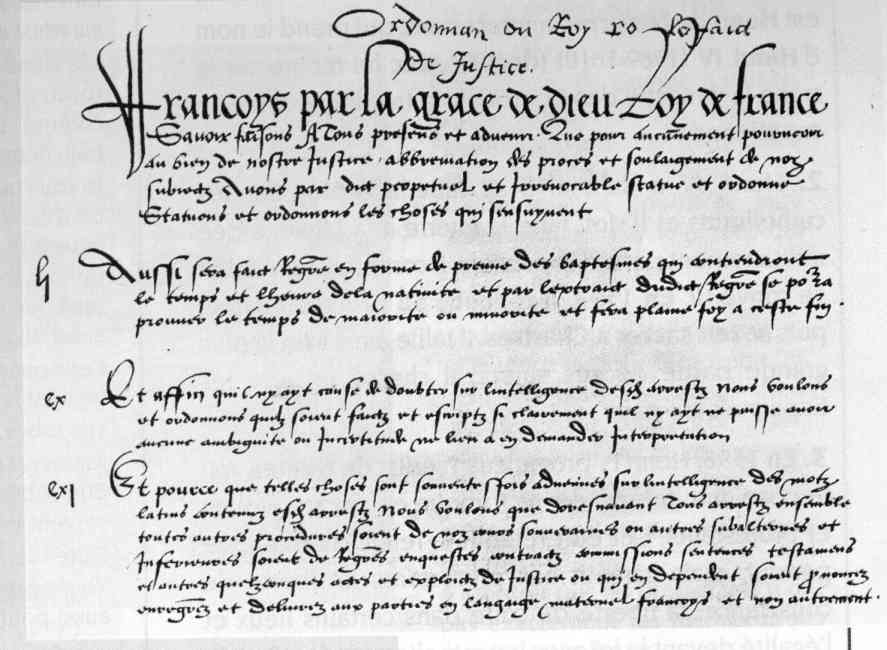 Ordonnan du Roy po le faict
de Justice.
Francoys par la grace de dieu Roy de france
Savoir faisons A Tous presens et advenir Que pour aucunement pourveoir
au bien de nostre Justice abbreviation des proces et soulaigement de noz
subiectz Avons par dict perpetuel et Irrevocable statue et ordonne
Statuons et ordonnons les choses qui sensuyvent
lj Aussi sera faict Regre en forme de preuve des baptesmes qui contiendront
le temps et lheure de la nativite et par lextraict dudict Regre se porra
prouver le temps de maiorite ou minorite et fera plaine foy a ceste fin.
cx Et affin quil ny ayt cause de doubter sur lintelligence desdz arrestz Nous voulons
et ordonnons quilz soient faictz et escriptz si clairement quil ny ayt ne puisse avoir
aucune ambiguite ou Incertitude ne lieu a en demander Interpretation
cxj Et pource que telles choses sont souventesfois advenues sur lintelligence des motz
latins contenuz esdz arrestz Nous voulons que doresnavant Tous arrestz ensemble
toutes autres procedures soient de noz cours souveraines ou autres subalternes et
Inferieures soient de Regres enquestes contractz commissions sentences testamens
et autres quelzconques actes et exploictz de Justice ou qui en dependent soient pnoncez
enregrez et delivrez aux parties en langaige maternel francoys et non autrement.